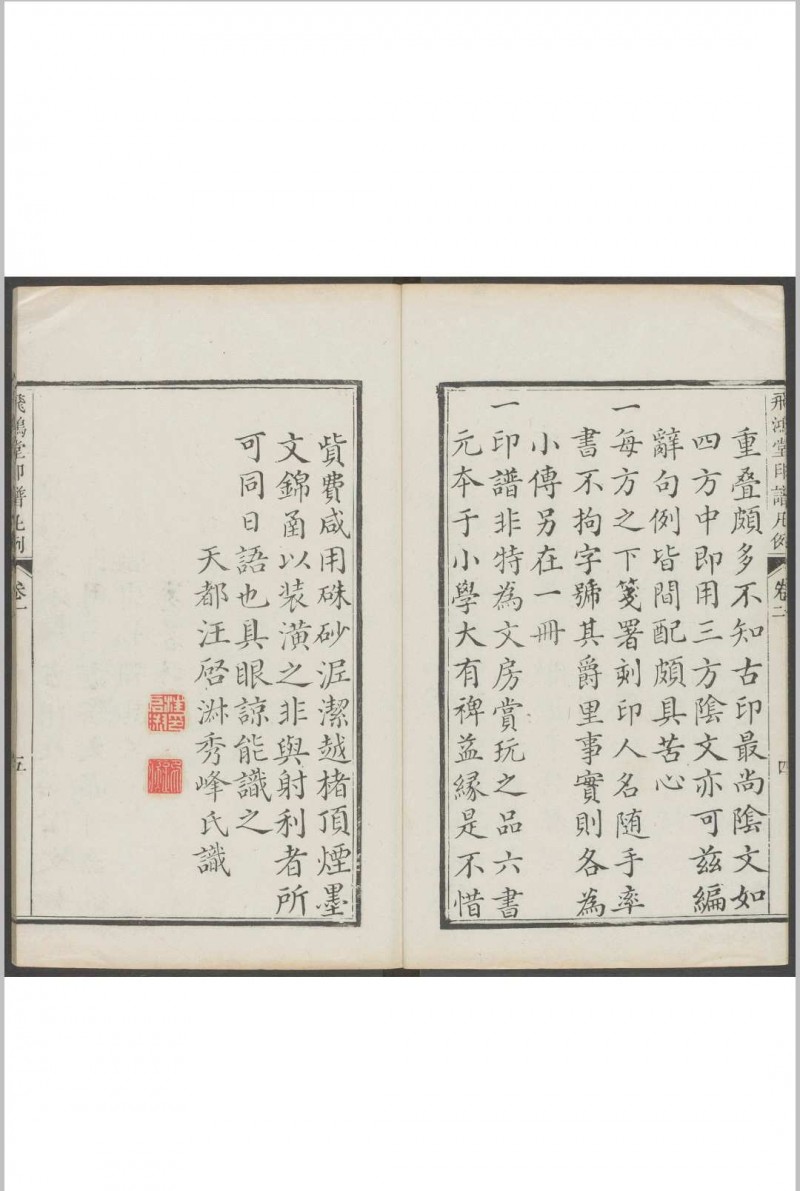 飛鴻堂印譜凡例 卷二 四
重叠頗多不知古印最尚陰文如
四方中即用三方陰文亦可兹編
辭句例皆間配頗具苦心
一每方之下箋署刻印人名随手率
書不拘字號其爵里事實則各為
小傳另在一冊
一印譜非特為文房賞玩之品六書
元本于小學大有裨益緣是不惜
貲費咸用硃砂泥潔越楮頂煙墨
文錦函以装潢之非與射利者所
可同日語也具眼諒能識之
天都汪啓淑秀峰氏識
飛鴻堂印譜凡例 卷一 五